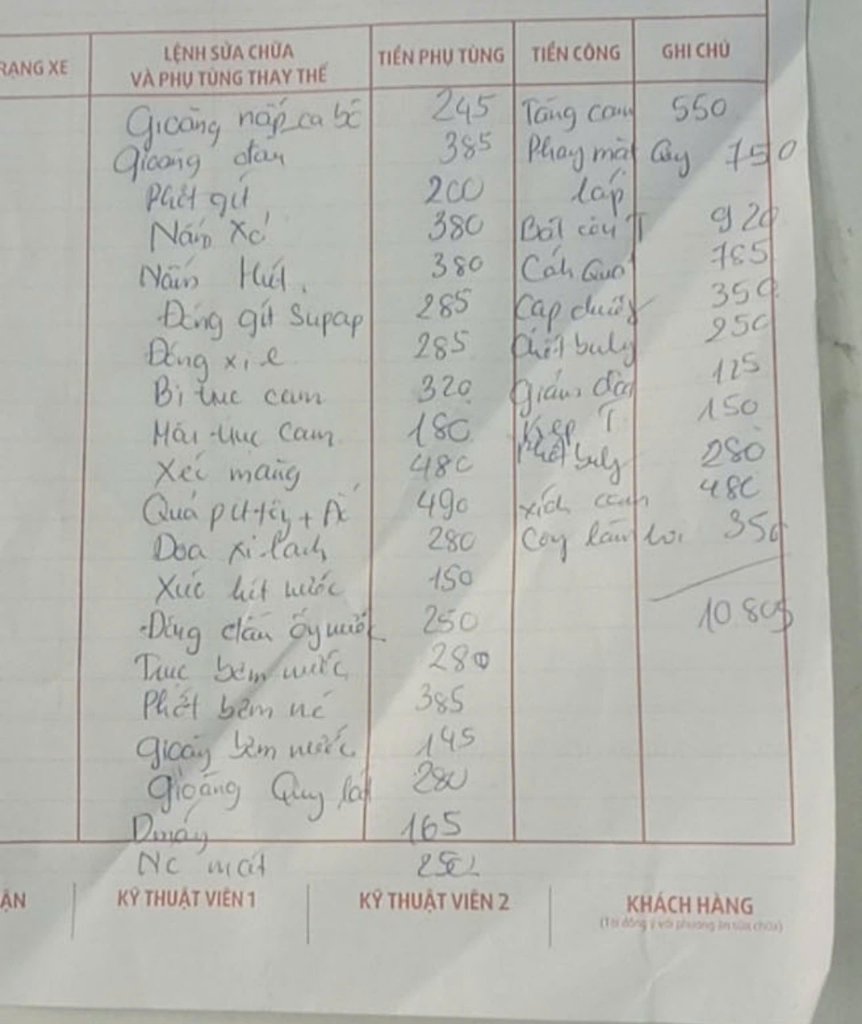 RẠNG XE
LỆNH SỬA CHỮA
VÀ PHỤ TÙNG THAY THẾ
TIỀN PHỤ TÙNG
TIỀN CÔNG
GHI CHÚ
Gioăng nắp 245 Tăng cam 550
Gioăng 385 Phay mặt Quy 750
Phớt gít 200 lắp
Nấm xả 380 920
Nấm Hút 380 785
Đóng gít Supap 285 350
Đóng 285 buly 250
Bi trục cam 320 125
trục cam 180 T 150
Xéc măng 480 Phớt buly 280
Quả 490 xích cam 480
Doa xi lanh 280 350
Xúc két nước 150
250 10.805
Trục bơm nước 280
Phớt bơm 385
Gioăng bơm nước 145
Gioăng Quy lát 280
Dmáy 165
NC mát 250
ẬN
KỸ THUẬT VIÊN 1
KỸ THUẬT VIÊN 2
KHÁCH HÀNG
(Tôi đồng ý với phương án sửa chữa)